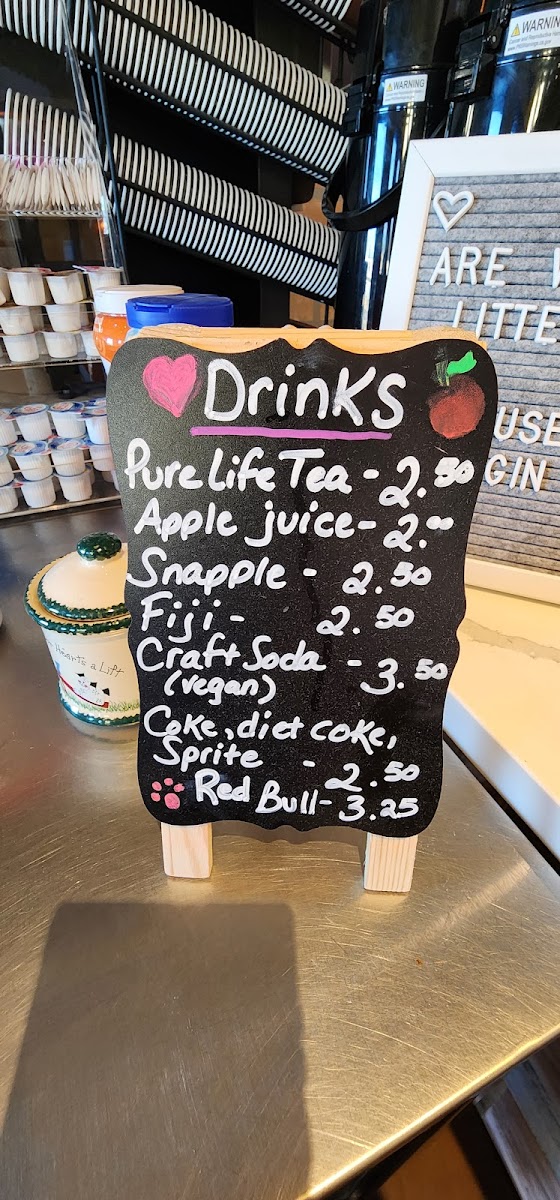 Drinks
Pure Life Tea - 2.50
Apple juice - 2.00
Snapple - 2.50
Fiji - 2.50
Craft Soda - 3.50
(vegan)
Coke, diet coke,
Sprite - 2.50
Red Bull - 3.25
WARNING
WARNIN
ARE
LITTE
USE
GIN
Hearts a Lift